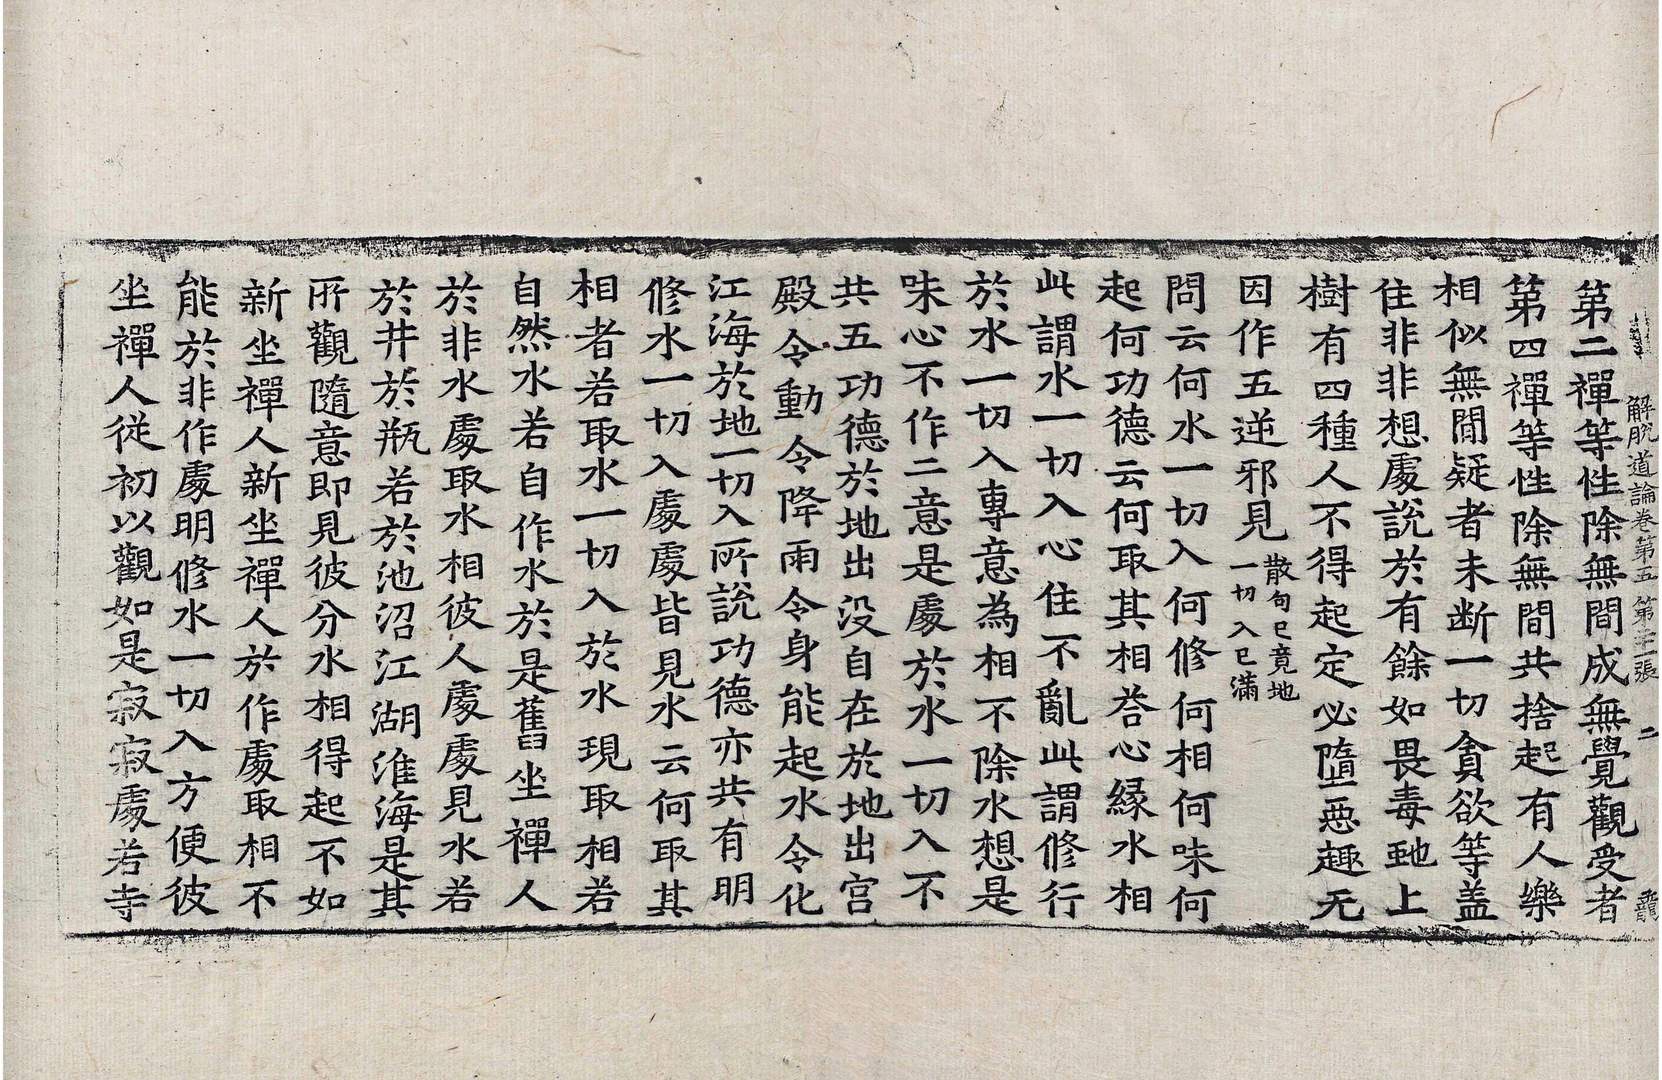 解脫道論卷第五 第二張 二 龍
第二禪等性除無間成無覺觀受者
第四禪等性除無間共捨起有人樂
相似無間疑者未断一切貪欲等盖
住非非想處說於有餘如畏毒虵上
樹有四種人不得起定必墮惡趣无
因作五逆邪見散句已竟地
一切入已滿
問云何水一切入何修何相何味何
起何功德云何取其相荅心緣水相
此謂水一切入心住不亂此謂修行
於水一切入專意為相不除水想是
味心不作二意是處於水一切入不
共五功德於地出没自在於地出宫
殿令動令降雨令身能起水令化
江海於地一切入所說功德亦共有明
修水一切入處處皆見水云何取其
相者若取水一切入於水現取相若
自然水若自作水於是舊坐禪人
於非水處取水相彼人處處見水若
於井於瓶若於池沼江湖淮海是其
所觀隨意即見彼分水相得起不如
新坐禪人新坐禪人於作處取相不
能於非作處明修水一切入方便彼
坐禪人從初以觀如是寂寂處若寺